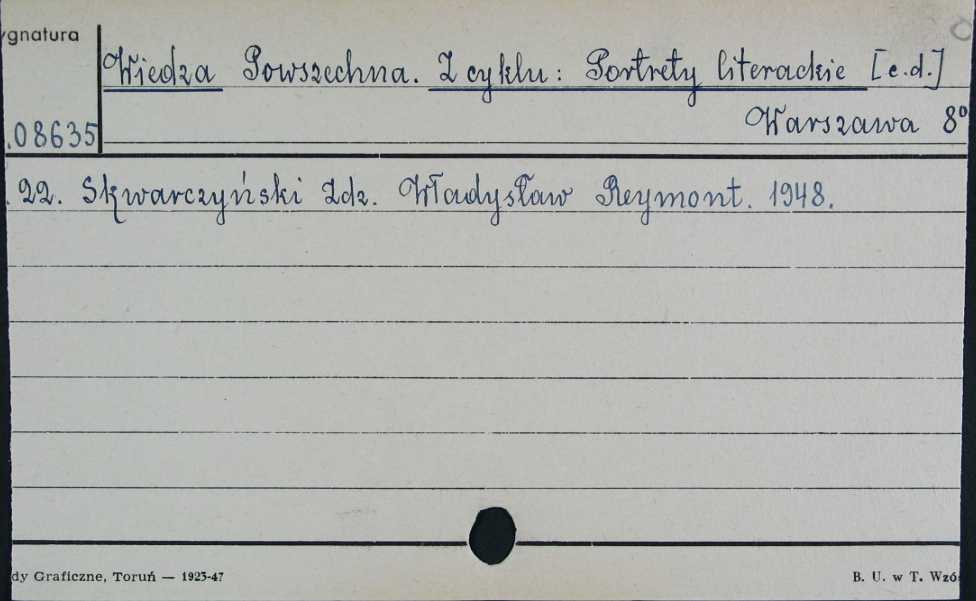 ygnatura
Wiedza Powszechna. Z cyklu: Portrety literackie [c.d.]
Warszawa 8º
.08635
. 22. Skwarczyński Zdz. Władysław Reymont. 1948.
dy Graficzne, Toruń — 1923-47
B. U. w T. Wzó